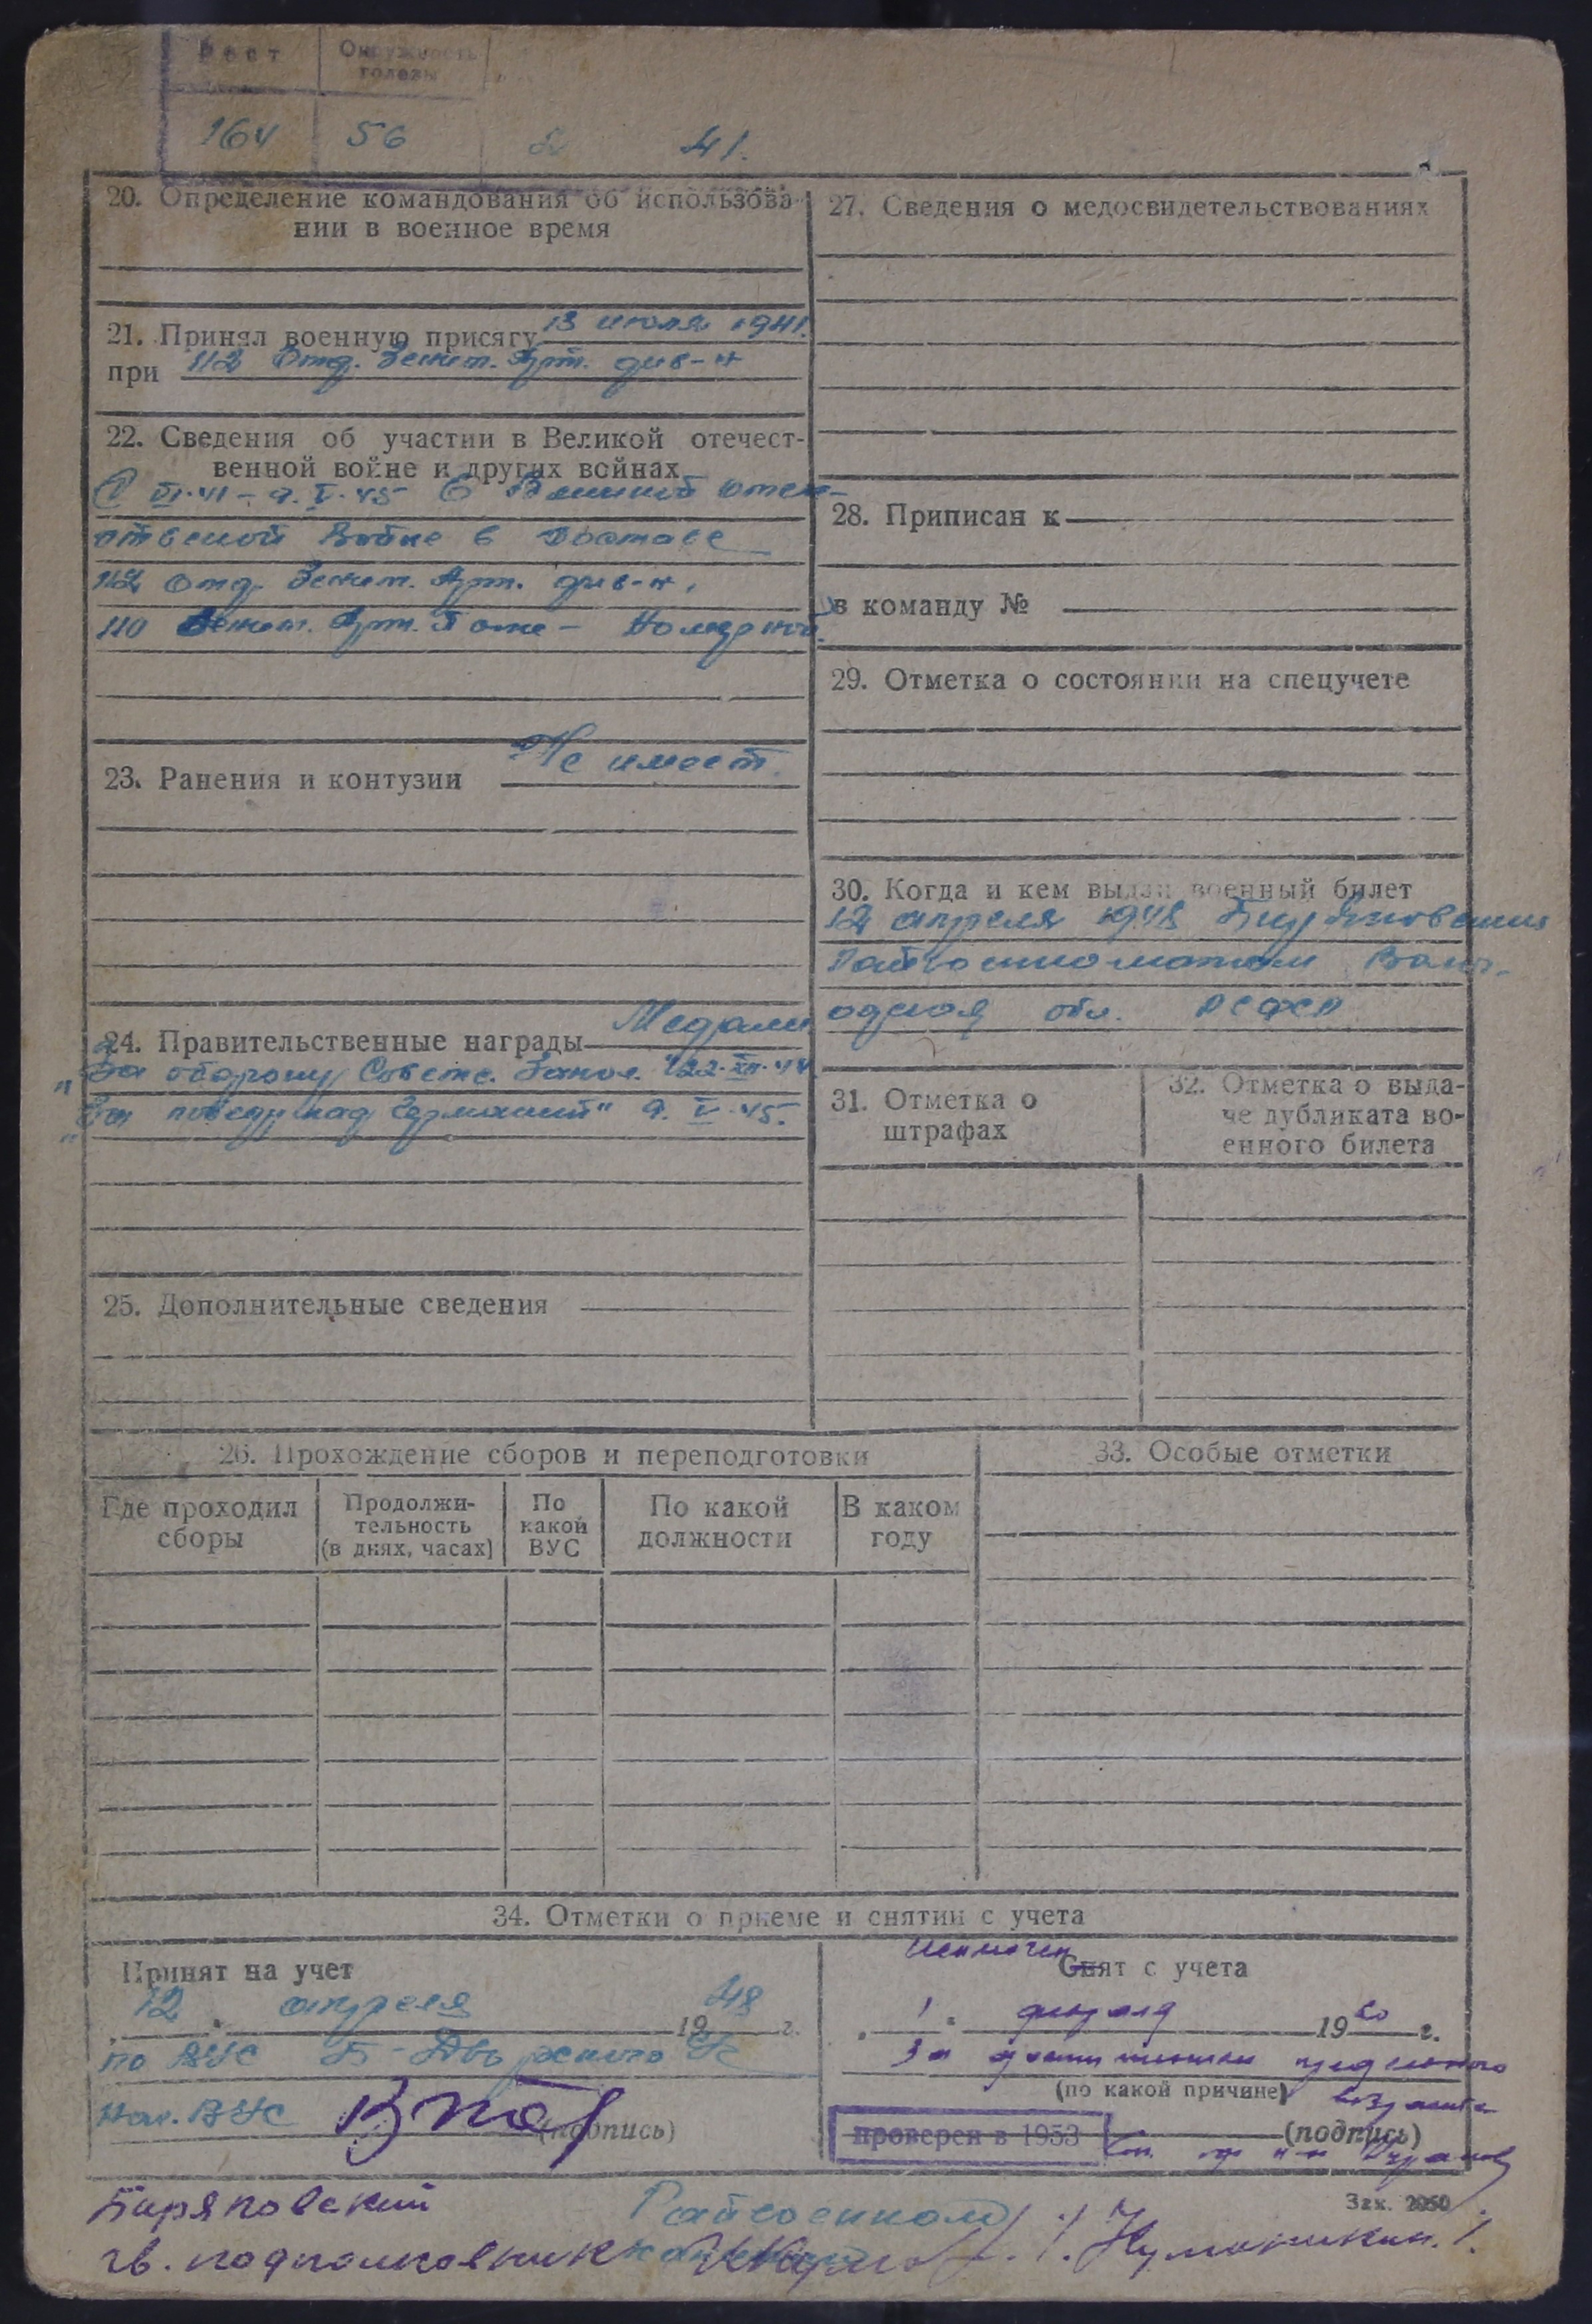 Рост Окружность головы
164 56 2 41.
20. Определение командования об использова-
нии в военное время
21. Принял военную присягу 13 июля 1941.
при 112 Отд. Зенит. Арт. див-н
22. Сведения об участии в Великой отечест-
венной войне и других войнах
С VI.41 - 9.V.45 в Великой отече-
ственой войне в составе
112 отд. Зенит. Арт. див-н,
110 Зенит. Арт. Полк - Номерной
23. Ранения и контузии Не имеет
24. Правительственные награды Медали
"За оборону Советс. Запол." 22.XII.44
"За победу над Германией" 9.V.45.
25. Дополнительные сведения
26. Прохождение сборов и переподготовки
Где проходил сборы
Продолжи-
тельность
(в днях, часах)
По
какой
ВУС
По какой
должности
В каком
году
27. Сведения о медосвидетельствованиях
28. Приписан к
в команду №
29. Отметка о состоянии на спецучете
30. Когда и кем выдан военный билет
12 апреля 1948 Биряковским
Райвоенкоматом Волог-
одская обл. РСФСР
31. Отметка о
штрафах
32. Отметка о выда-
че дубликата во-
енного билета
33. Особые отметки
34. Отметки о приеме и снятии с учета
Принят на учет
12 апреля 1948 г.
по ВУС
Нач. ВУС
(подпись)
Исключен
Снят с учета
1 февраля 19 г.
За достижением предельного
(по какой причине) возраста
проверен в 1953 (подпись)
Зак. 2050
Биряковский Райвоенком
гв. подполковник